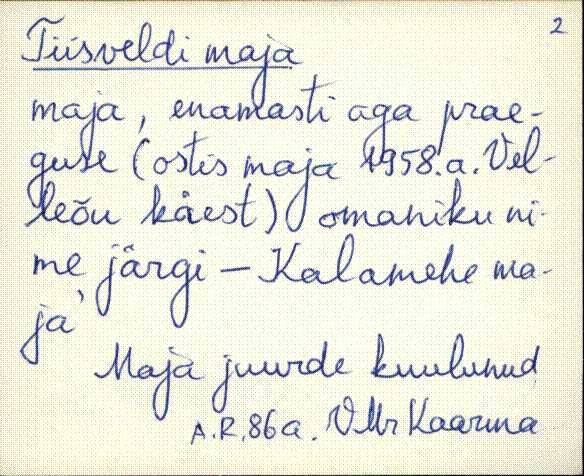 2
Tiisveldi maja
maja, enamasti aga prae-
guse (ostis maja 1958.a. Vel-
leõu käest) omaniku ni-
me järgi – Kalamehe ma-
ja'
Maja juurde kuulunud
A.R. 86a. VMr Kaarma